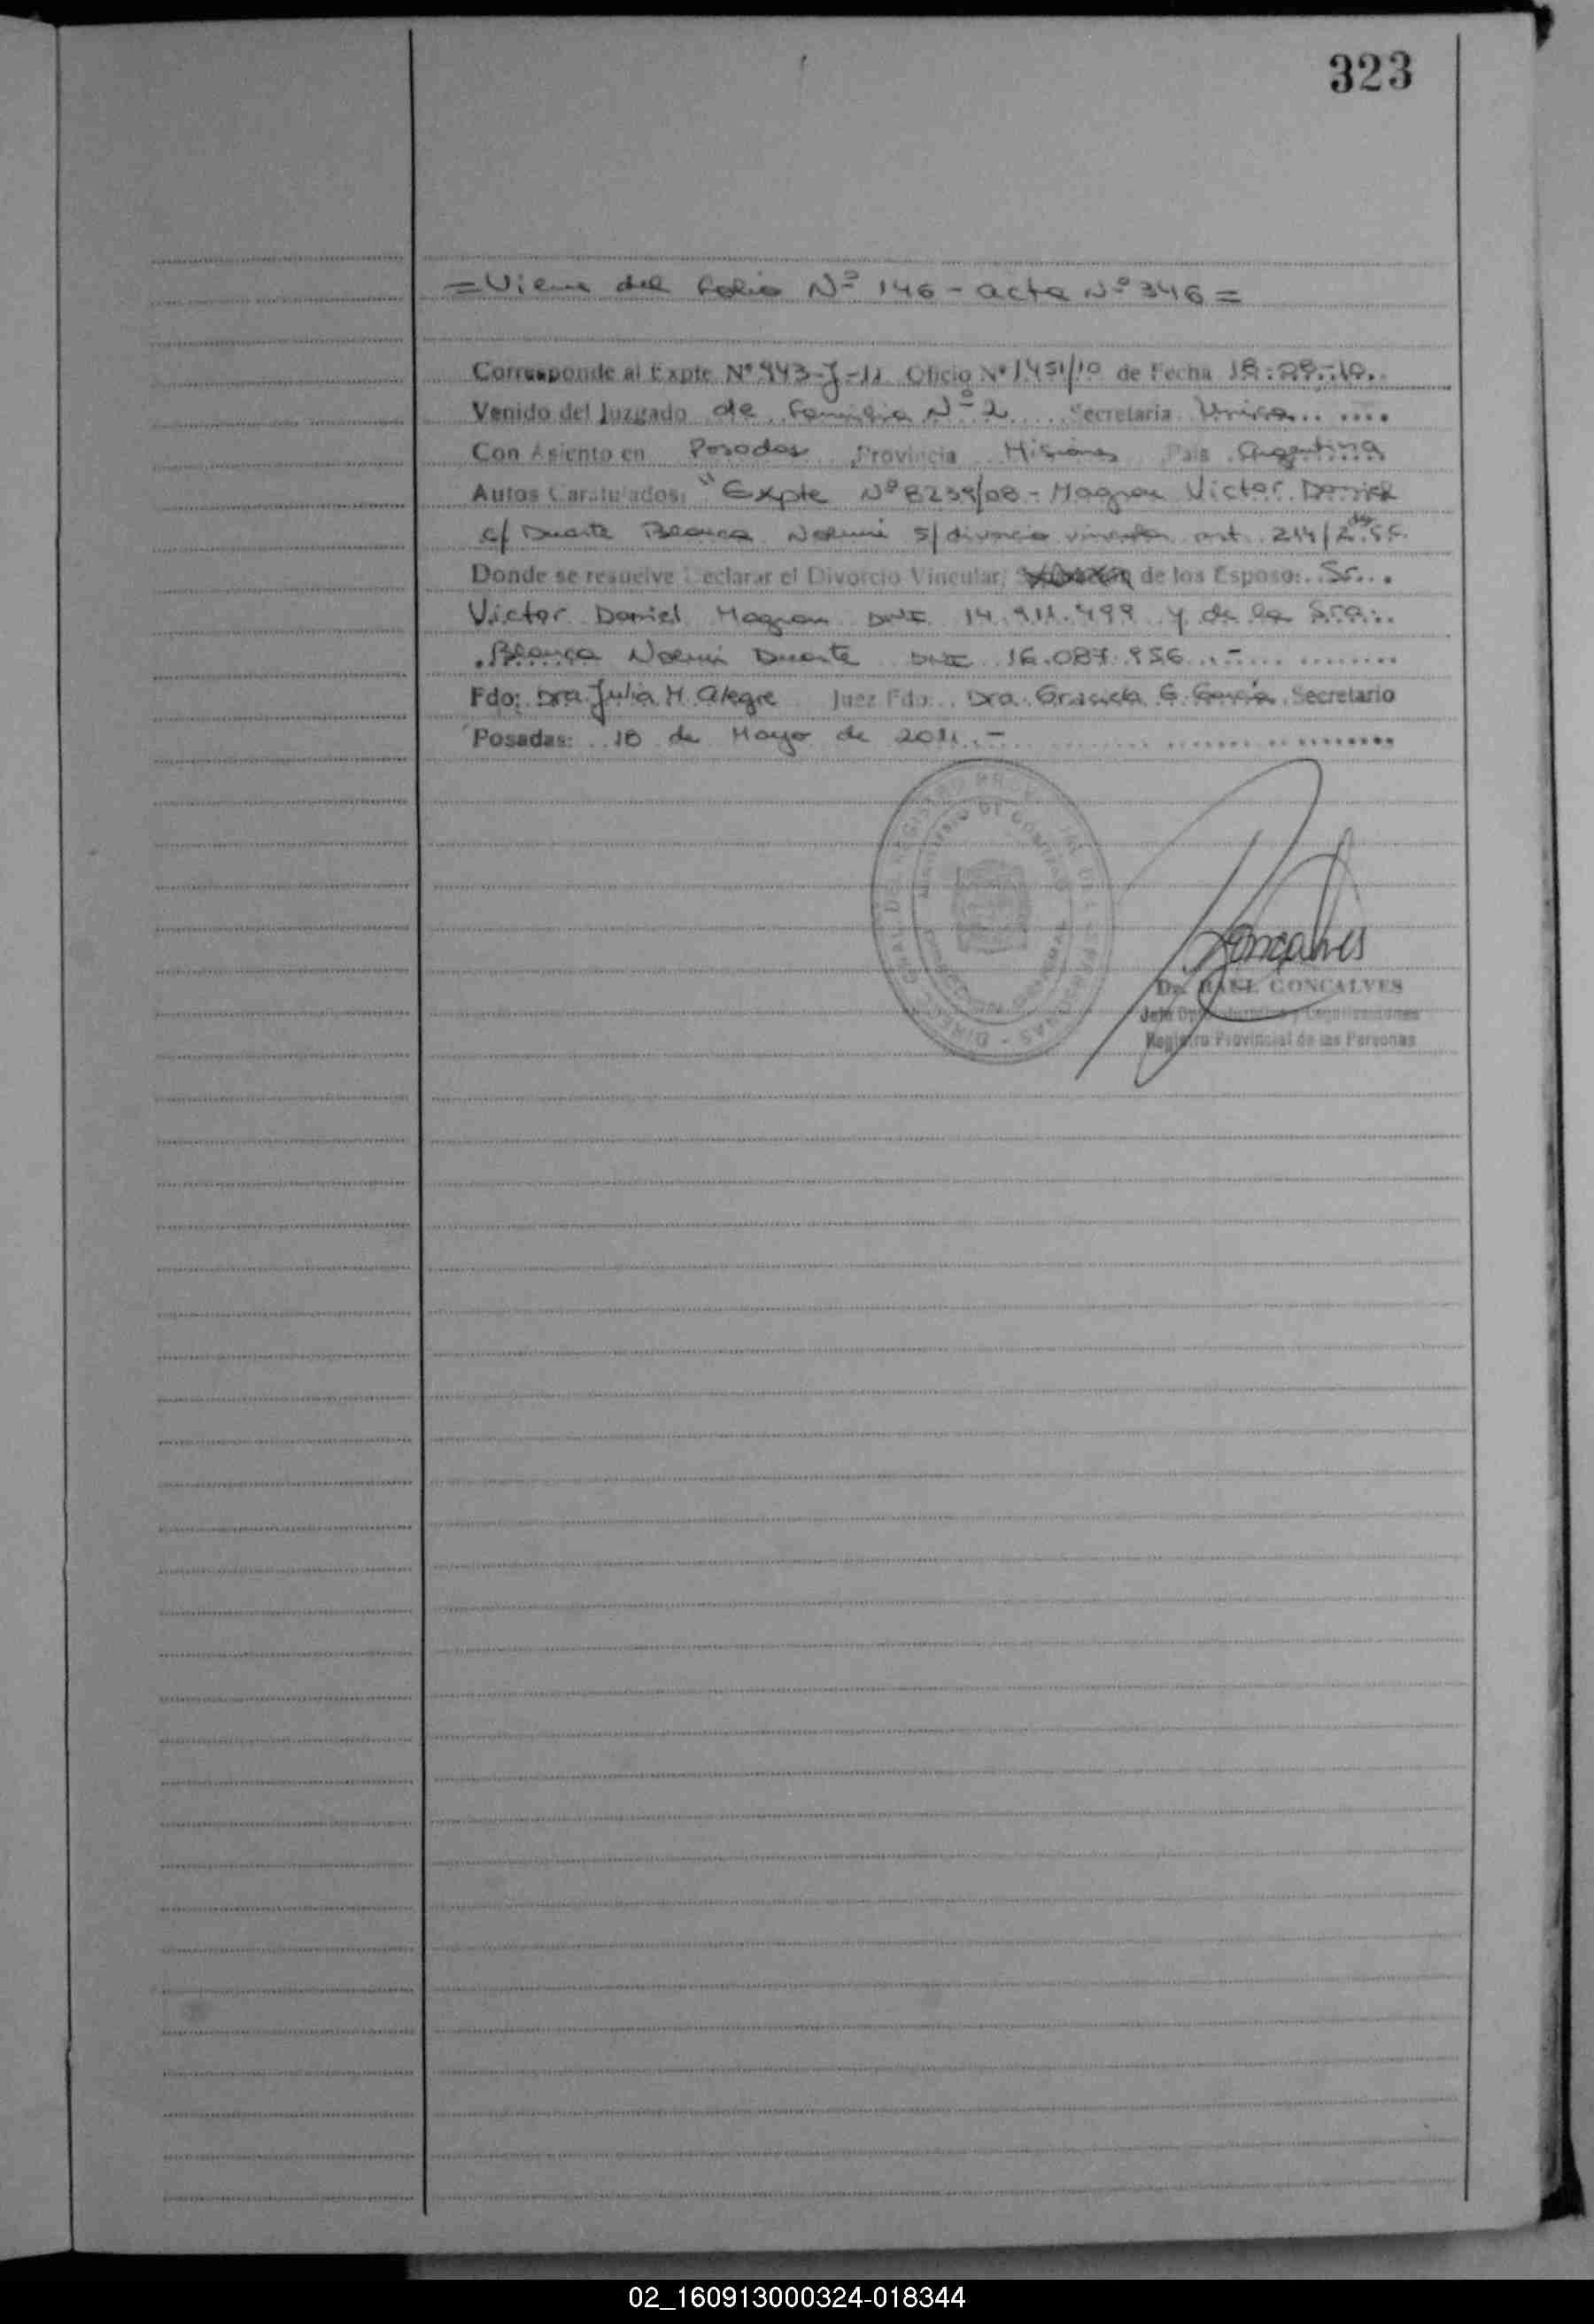 323
= Viene del folio Nº 146 - acta Nº 346 =
Corresponde al Expte Nº 943-J-11 Oficio Nº 1451/10 de Fecha
Venido del Juzgado de Familia Nº 2 Secretaria Unica
Con Asiento en Posadas Provincia Misiones Pais Argentina
Autos Caratulados: "Expte Nº 8239/08 - Victor Daniel
c/ Duarte Blanca Noemi s/ divorcio vincular art. 214/2
Donde se resuelve Declarar el Divorcio Vincular, de los Esposo: Sr.
Victor Daniel DNI 14.911.499 y de la Sra.
Blanca Noemi Duarte DNI 16.087.956.-
Fdo: Dra. Julia H. Alegre Juez Fdo: Dra. Graciela G. Garcia Secretario
Posadas: 18 de Mayo de 2011.-
Goncalves
GONCALVES
Registro Provincial de las Personas
02_160913000324-018344